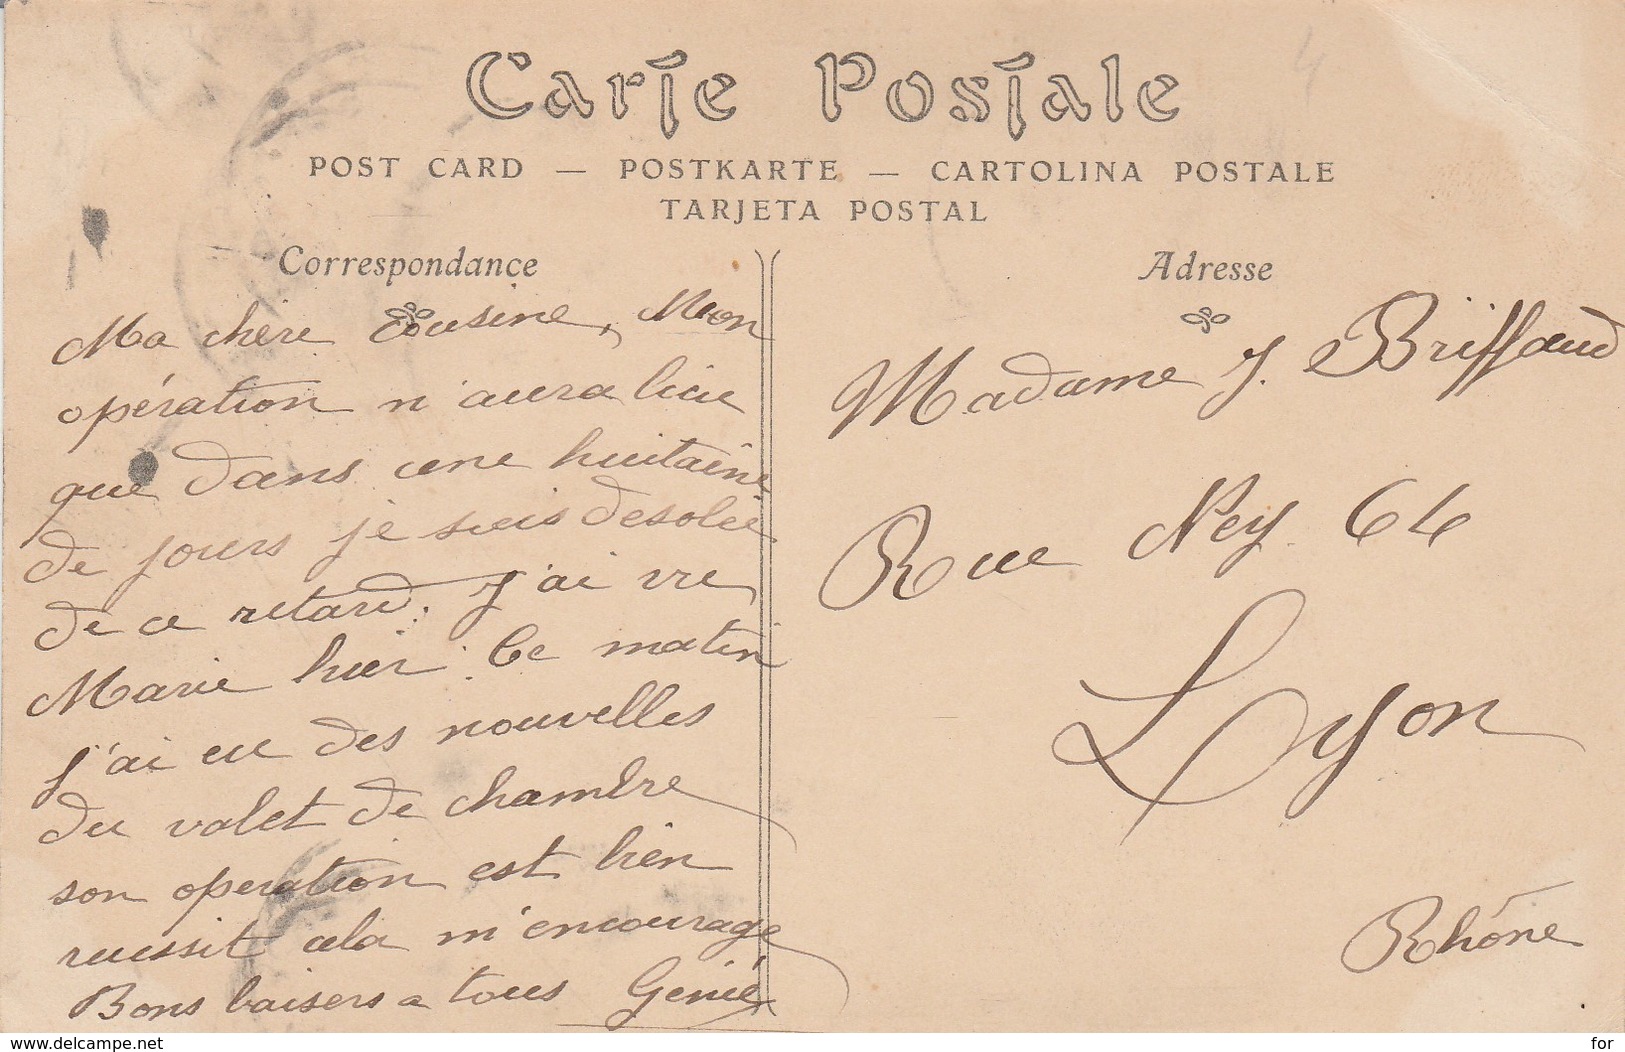 Carte Postale
POST CARD — POSTKARTE — CARTOLINA POSTALE
TARJETA POSTAL
Correspondance
Ma chère cousine, Mon
opération n'aura lieu
que dans une huitaine
de jours je suis désolée
de ce retard. J'ai vu
Marie hier. Ce matin
j'ai eu des nouvelles
du valet de chambre
son operation est bien
reussit cela m'encourage
Bons baisers a tous Génie
Adresse
Madame J. Briffaud
Rue Ney 64
Lyon
Rhône
www.delcampe.net
for